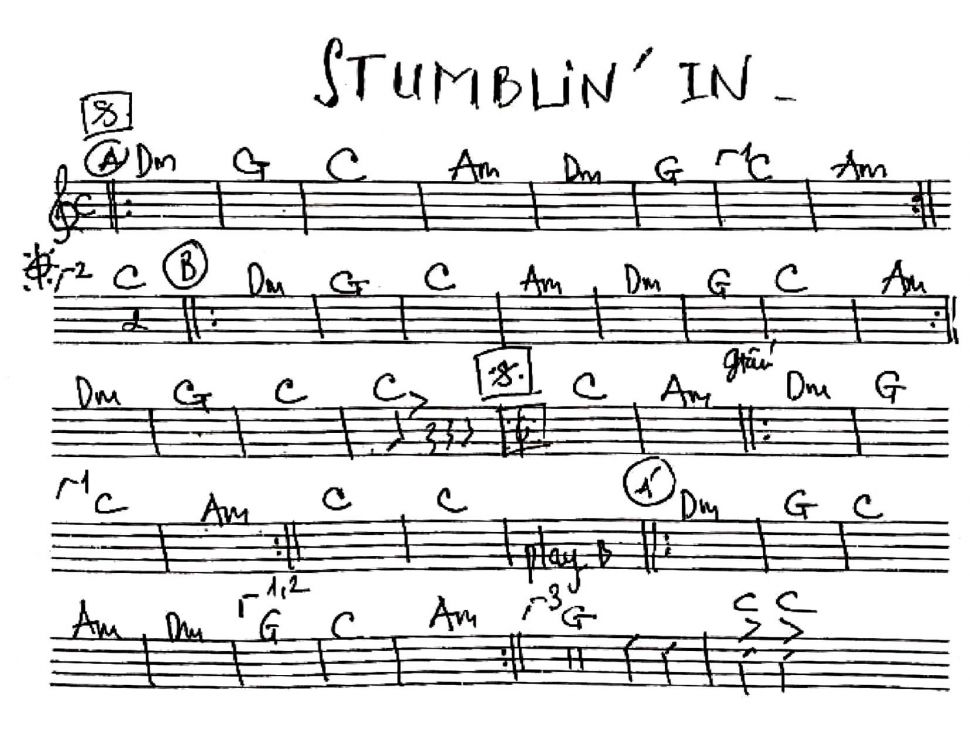 STUMBLIN' IN -
A Dm G C Am Dm G 1 C Am
2 C B Dm G C Am Dm G C Am
Dm G C C C Am Dm G
1 C Am C C A' Dm G C
play B
Am Dm 1,2 G C Am 3 G C C